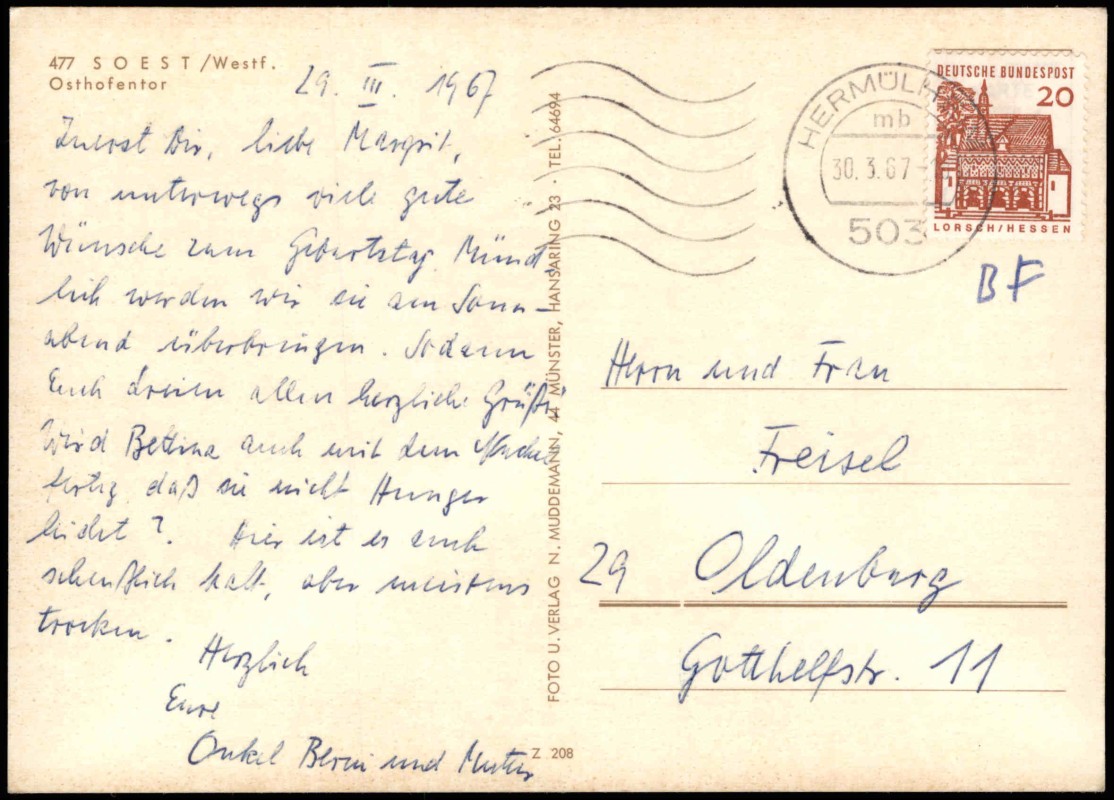 477 SOEST/Westf.
Osthofentor
29. III. 1967
Zuerst Dir, liebe Margrit,
von unterwegs viele gute
Wünsche zum Geburtstag. Münd-
lich werden wir sie am Sonn-
abend überbringen. Sodann
Euch dreien allen herzliche Grüße!
Wird Bettina auch mit dem
fertig, daß sie nicht Hunger
leidet? Hier ist es auch
scheußlich kalt, aber meistens
trocken.
Herzlich
Eure
Onkel und Mutter
FOTO U. VERLAG N. MUDDEMANN, 44 MÜNSTER, HANSARING 23 · TEL. 64694
Z 208
HERMÜLH
mb
30.3.67
503
DEUTSCHE BUNDESPOST
20
LORSCH/HESSEN
BF
Herrn und Frau
Freisel
29 Oldenburg
Gotthelfstr. 11